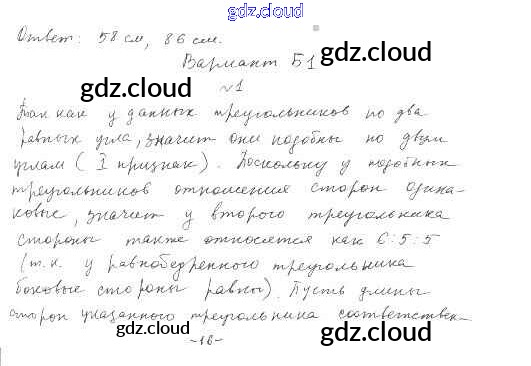 gdz.cloud
Ответ: 58 см, 86 см.
gdz.cloud
Вариант Б1
gdz.cloud gdz.cloud
№1
Так как у данных треугольников по два
равных угла, значит они подобны по двум
углам (I признак). Поскольку у подобных
треугольников отношения сторон одина-
ковые, значит у второго треугольника
стороны также относятся как 6:5:5
(т.к. у равнобедренного треугольника
боковые стороны равны). Пусть длины
сторон указанного треугольника соответствен-
gdz.cloud gdz.cloud
-16-